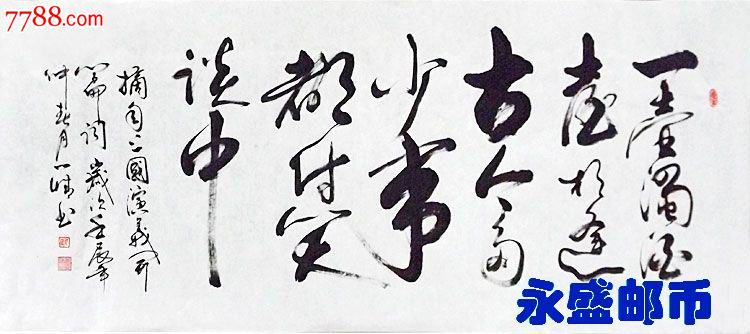 7788.com
一壶浊酒
喜相逢
古今多
少事
都付笑
谈中
摘自三國演義开
篇词 歲次壬辰年
仲春月
书
永盛邮币